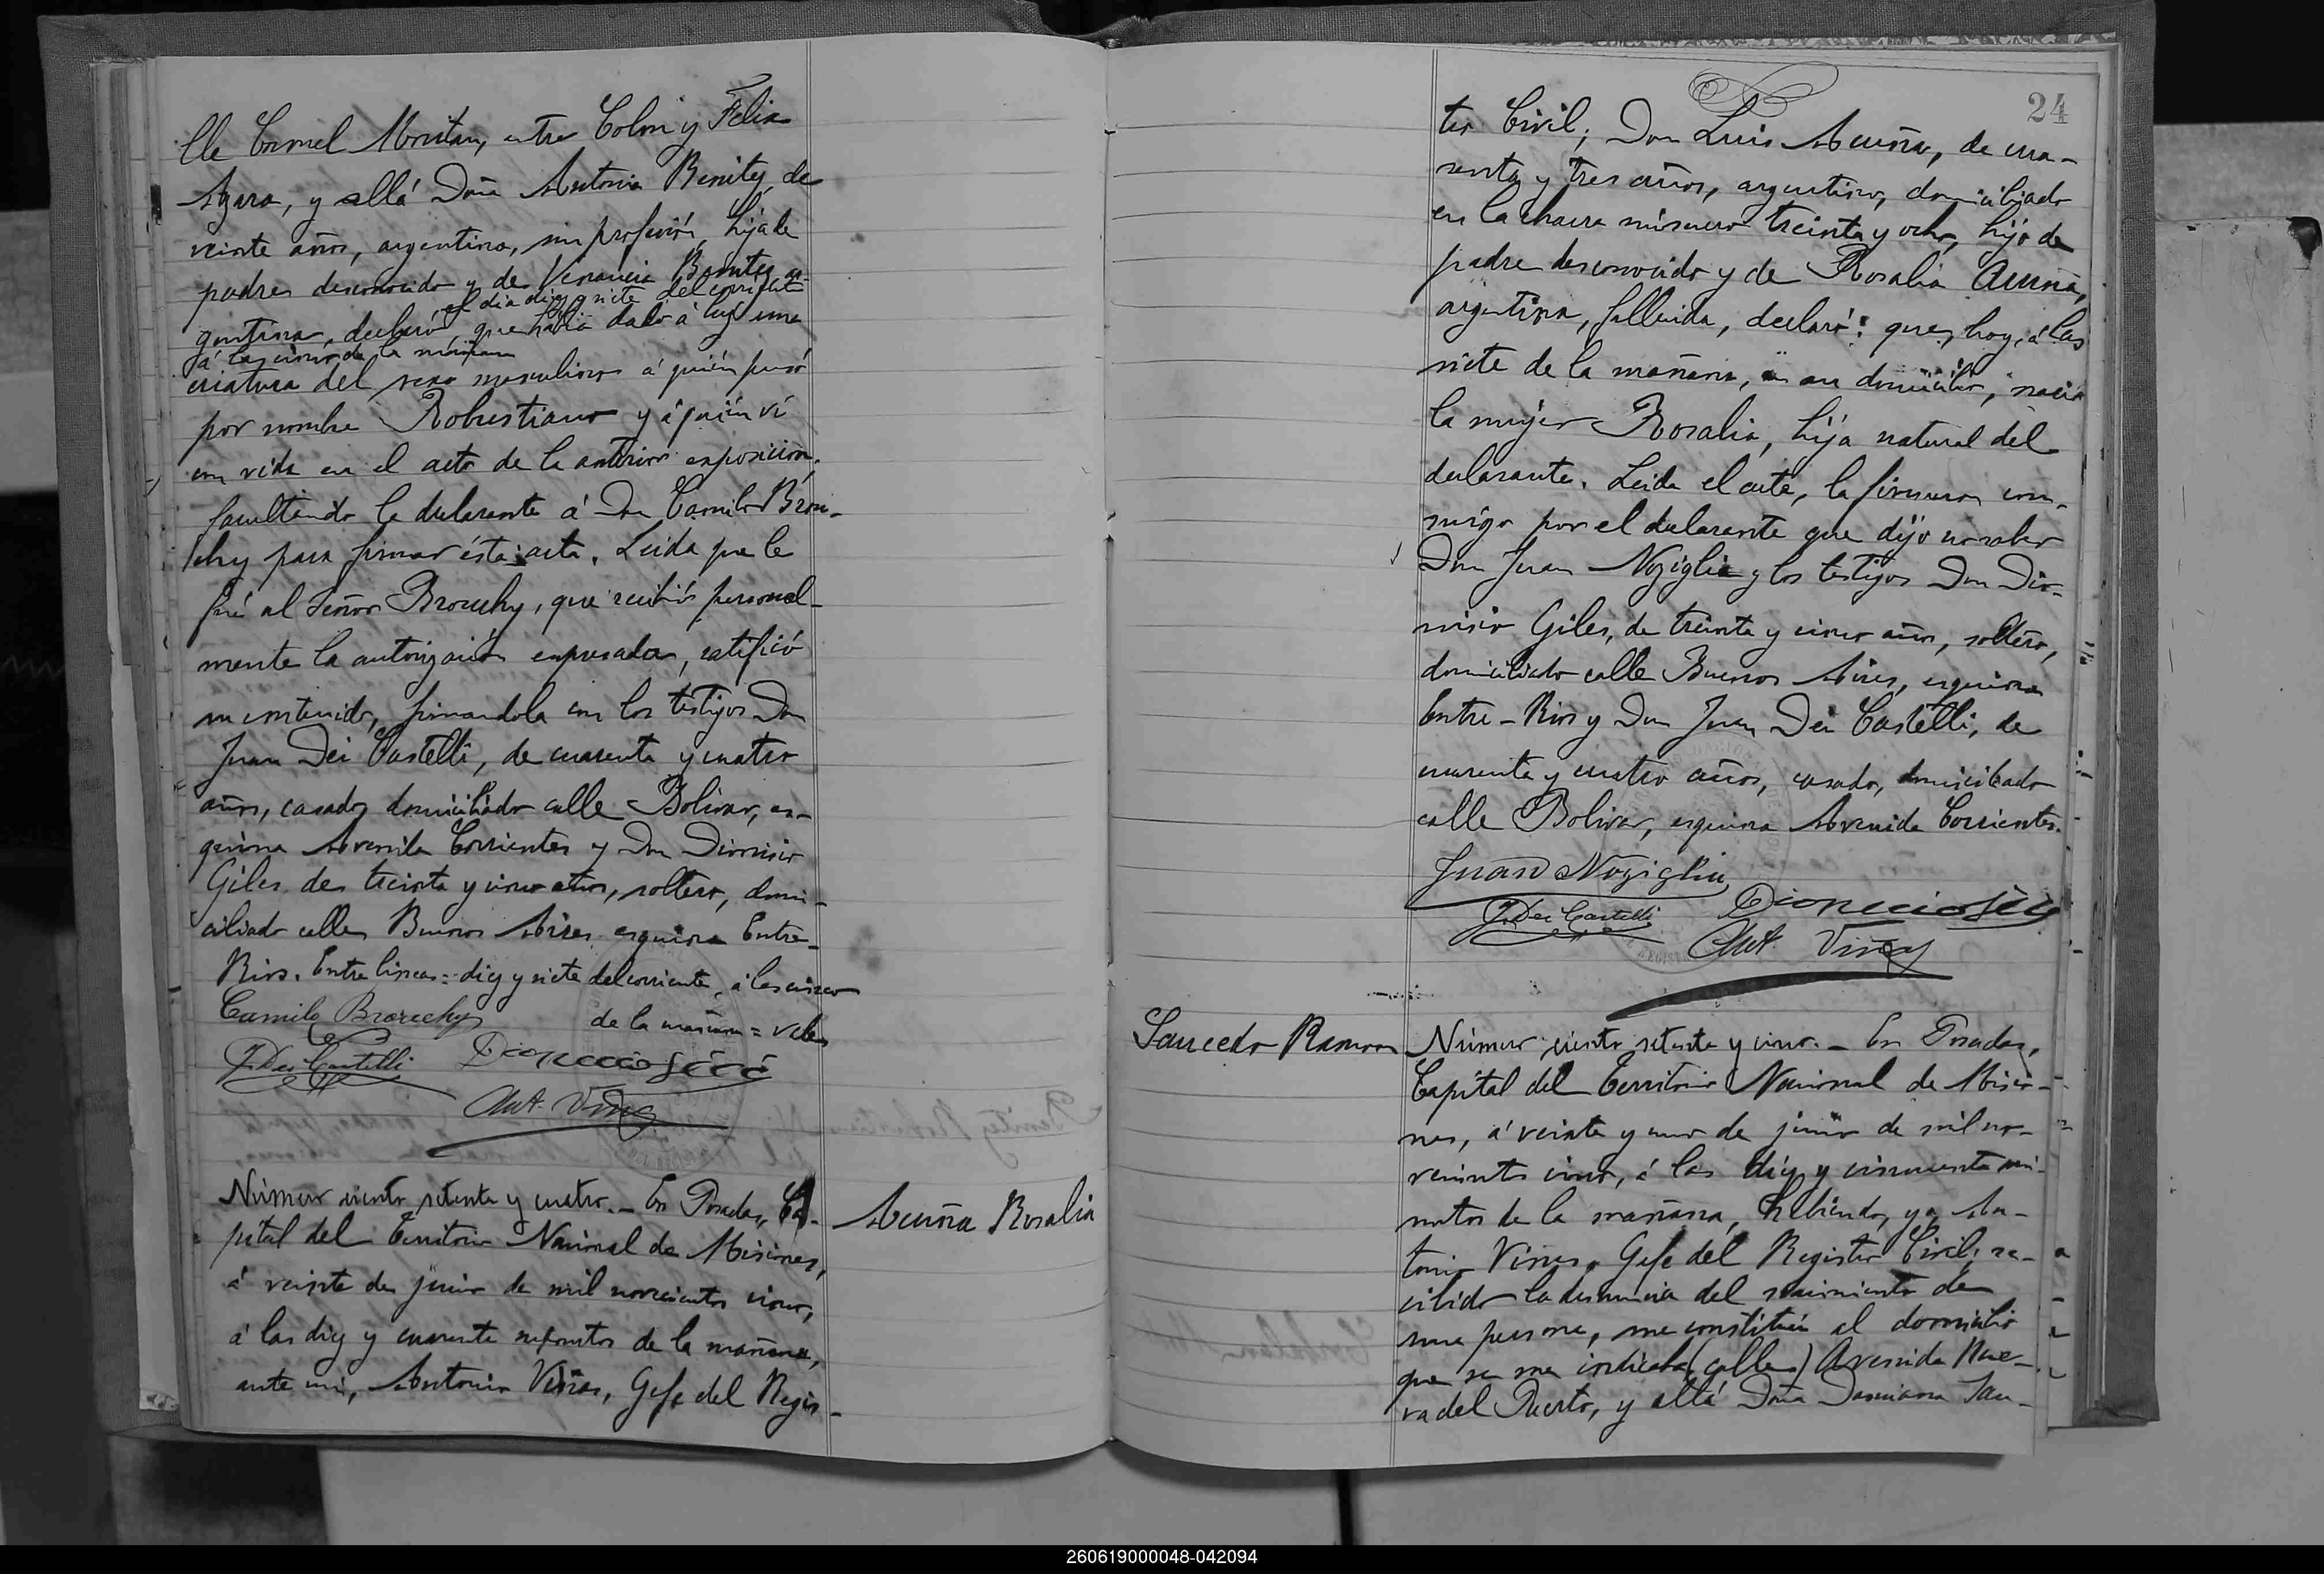 lle Coronel Moritan, entre Colon y Felix
Azara, y allá Doña Antonia Benitez, de
veinte años, argentina, sin profesión, hija de
padre desconocido y de Venancia Benitez, ar-
el dia diez y siete del corriente
gentina, declaró que había dado á luz una
á las cinco de la mañana
criatura del sexo masculino á quién puso
por nombre Robustiano y á quién ví
con vida en el acto de la anterior exposición,
facultando la declarante á Don Camilo Brou-
chy para firmar ésta acta. Leida que le
fué al Señor Brouchy, que recibió personal-
mente la autorización expresada, ratificó
su contenido, firmandola con los testigos Don
Juan Dei Castelli, de cuarenta y cuatro
años, casado, domiciliado calle Bolivar, es-
quina Avenida Corrientes y Don Dionisio
Giles, de treinta y cinco años, soltero, domi-
ciliado calle Buenos Aires esquina Entre-
Rios. Entre lineas = diez y siete del corriente, á las cinco
de la mañana = vale
Camilo Brouchy
J. Dei Castelli
Ant. Viñas
Número ciento setenta y cuatro. - En Posadas, Ca-
pital del Territorio Nacional de Misiones,
á veinte de junio de mil novecientos cinco,
á las diez y cuarenta minutos de la mañana,
ante mi, Antonio Viñas, Gefe del Regis-
Acuña Rosalia
24
tro Civil; Don Luis Acuña, de cua-
renta y tres años, argentino, domiciliado
en la chacra número treinta y ocho, hijo de
padre desconocido y de Rosalia Acuña,
argentina, fallecida, declaró: que, hoy, á las
siete de la mañana, en su domicilio, nació
la mujer Rosalia, hija natural del
declarante. Leida el acta, la firmaron con-
migo por el declarante que dijo no saber
Don Juan Noziglia y los testigos Don Dio-
nisio Giles, de treinta y cinco años, soltero,
domiciliado calle Buenos Aires, esquina
Entre-Rios y Don Juan Dei Castelli, de
cuarenta y cuatro años, casado, domiciliado
calle Bolivar, esquina Avenida Corrientes.
Juan Noziglia
J. Dei Castelli
Ant. Viñas
Saucedo Ramon
Número ciento setenta y cinco. - En Posadas,
Capital del Territorio Nacional de Misio-
nes, á veinte y uno de junio de mil no-
vecientos cinco, á las diez y cincuenta mi-
nutos de la mañana, habiendo, yo, An-
tonio Viñas, Gefe del Registro Civil, re-
cibido la denuncia del nacimiento de
una persona, me constituí al domicilio
que se me indicaba (calle) Avenida Nue-
va del Puerto, y allá Doña Damiana Sau-
260619000048-042094